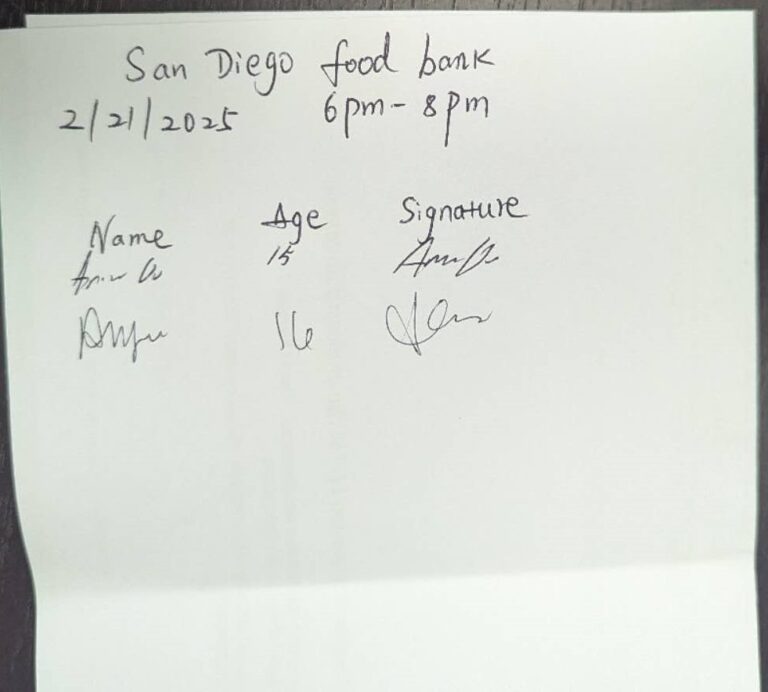 San Diego food bank
2/21/2025 6pm - 8pm
Name Age Signature
15
16